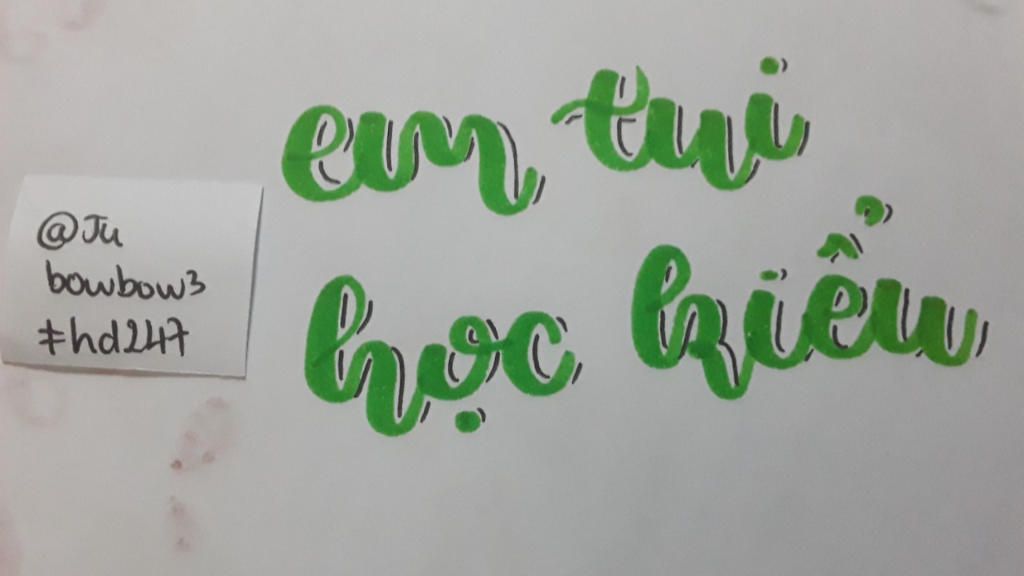 em tui
học kiểu
@Ju
bowbow3
#hd247